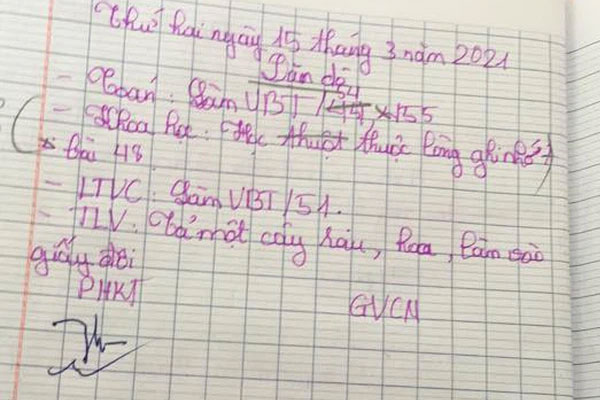 Thứ hai ngày 15 tháng 3 năm 2021
Dặn dò
- Toán: Làm VBT / 54 155
- Khoa học: Học thuột thuộc lòng ghi nhớ
bài 48
- LTVC: Làm VBT/51.
- TLV: Tả một cây rau, hoa, làm vào
giấy đôi
PHKT GVCN